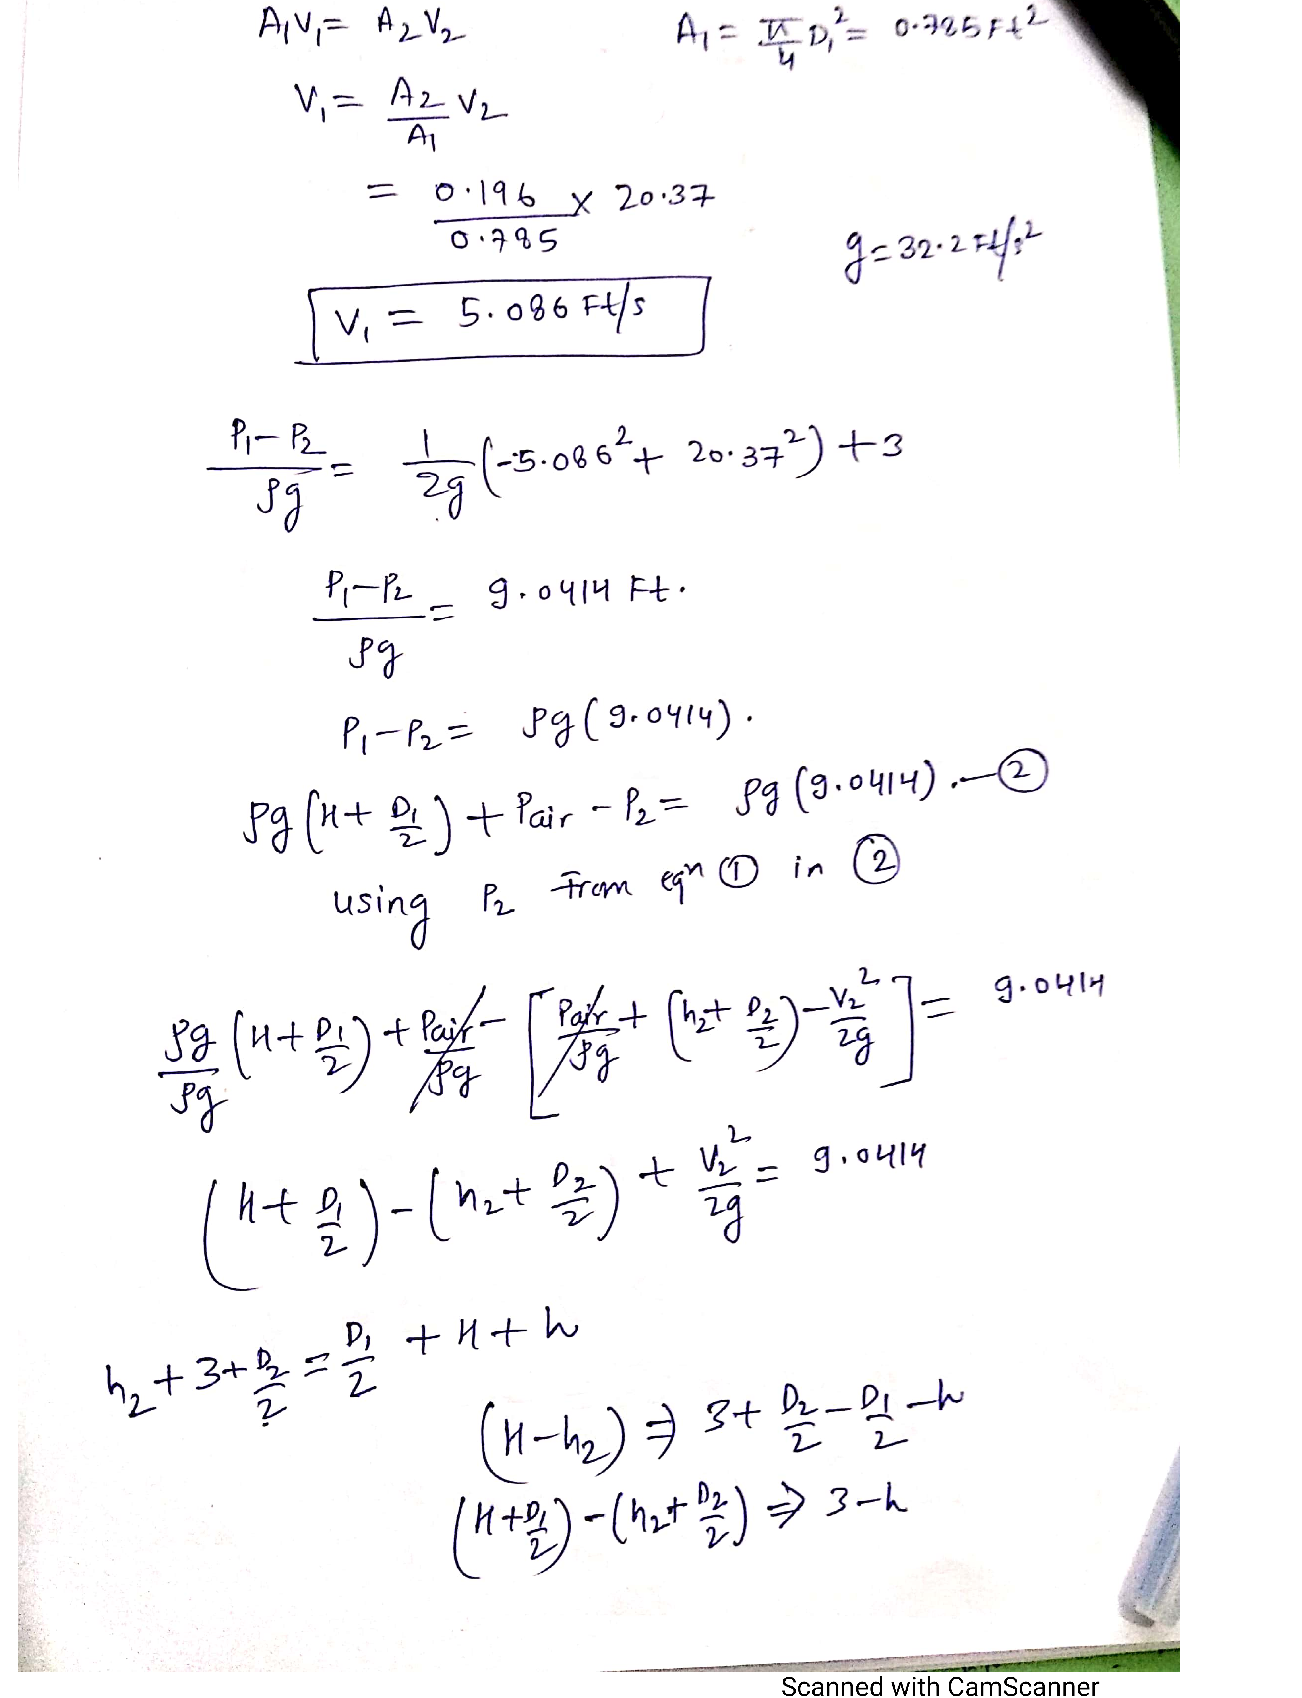 A₁V₁ = A₂V₂
A₁ = π/4 D₁² = 0.785 Ft²
V₁ = A₂/A₁ V₂
= 0.196/0.785 × 20.37
g = 32.2 Ft/s²
V₁ = 5.086 Ft/s
(P₁ - P₂)/ρg = 1/2g (-5.086² + 20.37²) + 3
(P₁ - P₂)/ρg = 9.0414 Ft.
P₁ - P₂ = ρg (9.0414).
ρg (H + D₁/2) + Pair - P₂ = ρg (9.0414). — ②
using P₂ From eqn ① in ②
ρg/ρg (H + D₁/2) + Pair/ρg - [Pair/ρg + (h₂ + D₂/2) - V₂²/2g] = 9.0414
(H + D₁/2) - (h₂ + D₂/2) + V₂²/2g = 9.0414
h₂ + 3 + D₂/2 = D₁/2 + H + h
(H - h₂) ⇒ 3 + D₂/2 - D₁/2 - h
(H + D₁/2) - (h₂ + D₂/2) ⇒ 3 - h
Scanned with CamScanner